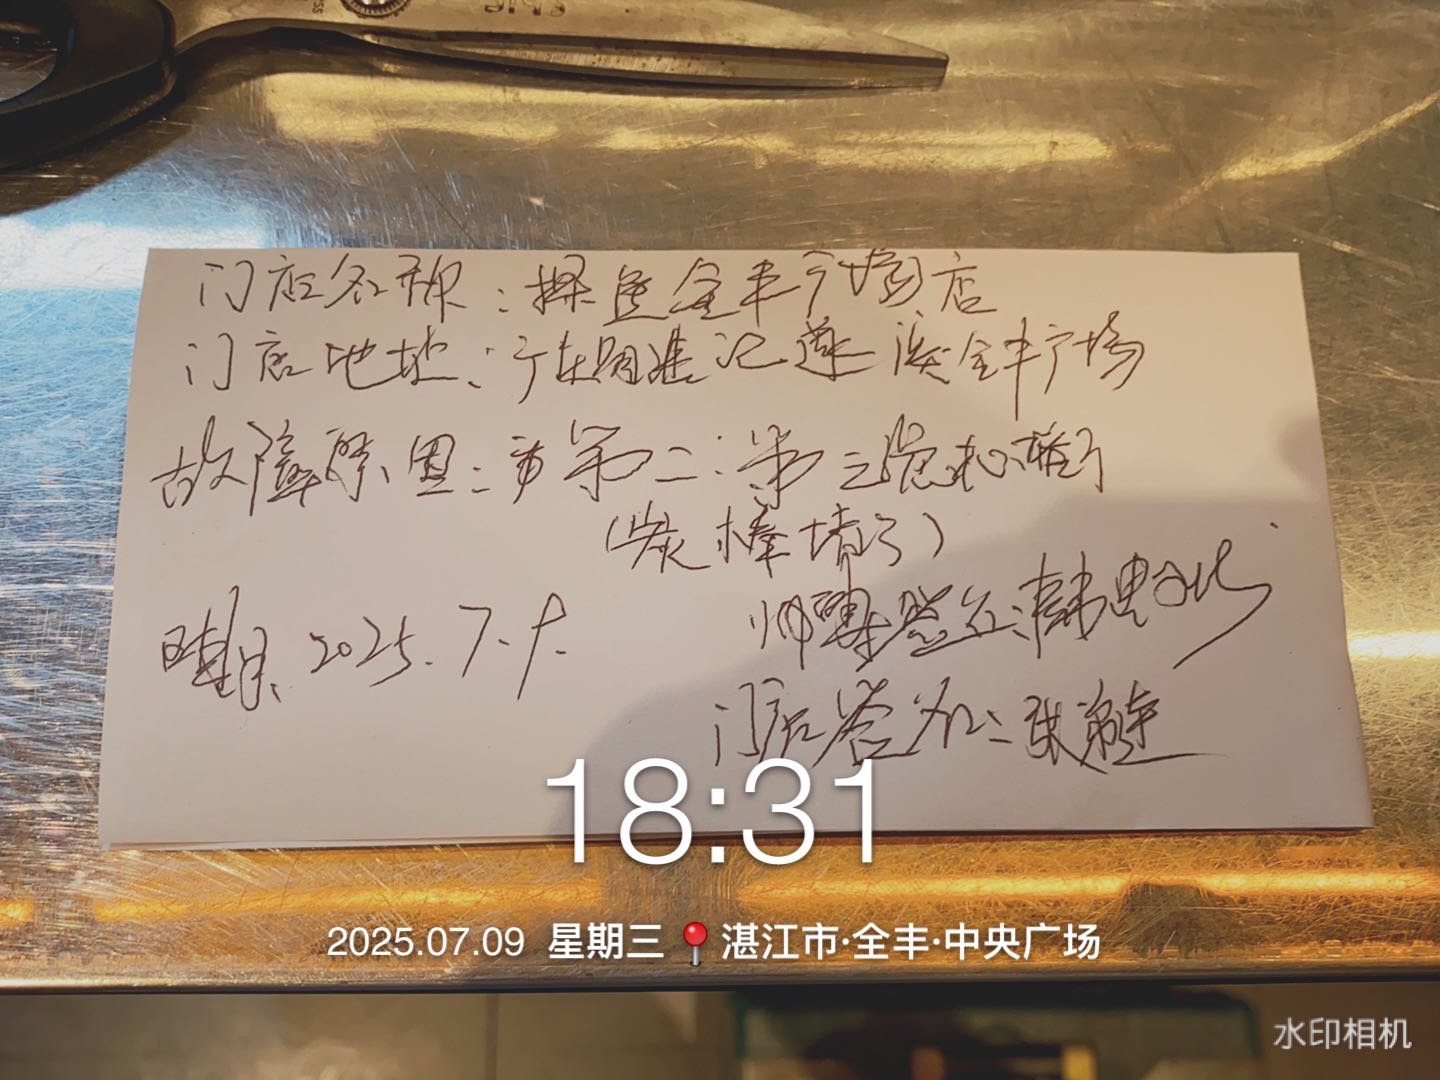 门店名称：探鱼全丰广场店
门店地址：广东省湛江遂溪全丰广场
故障原因：第二：第三
（炭棒堵了）
日期：2025.7.9.
师傅签名：
门店签名：张
18:31
2025.07.09 星期三 湛江市·全丰·中央广场
水印相机